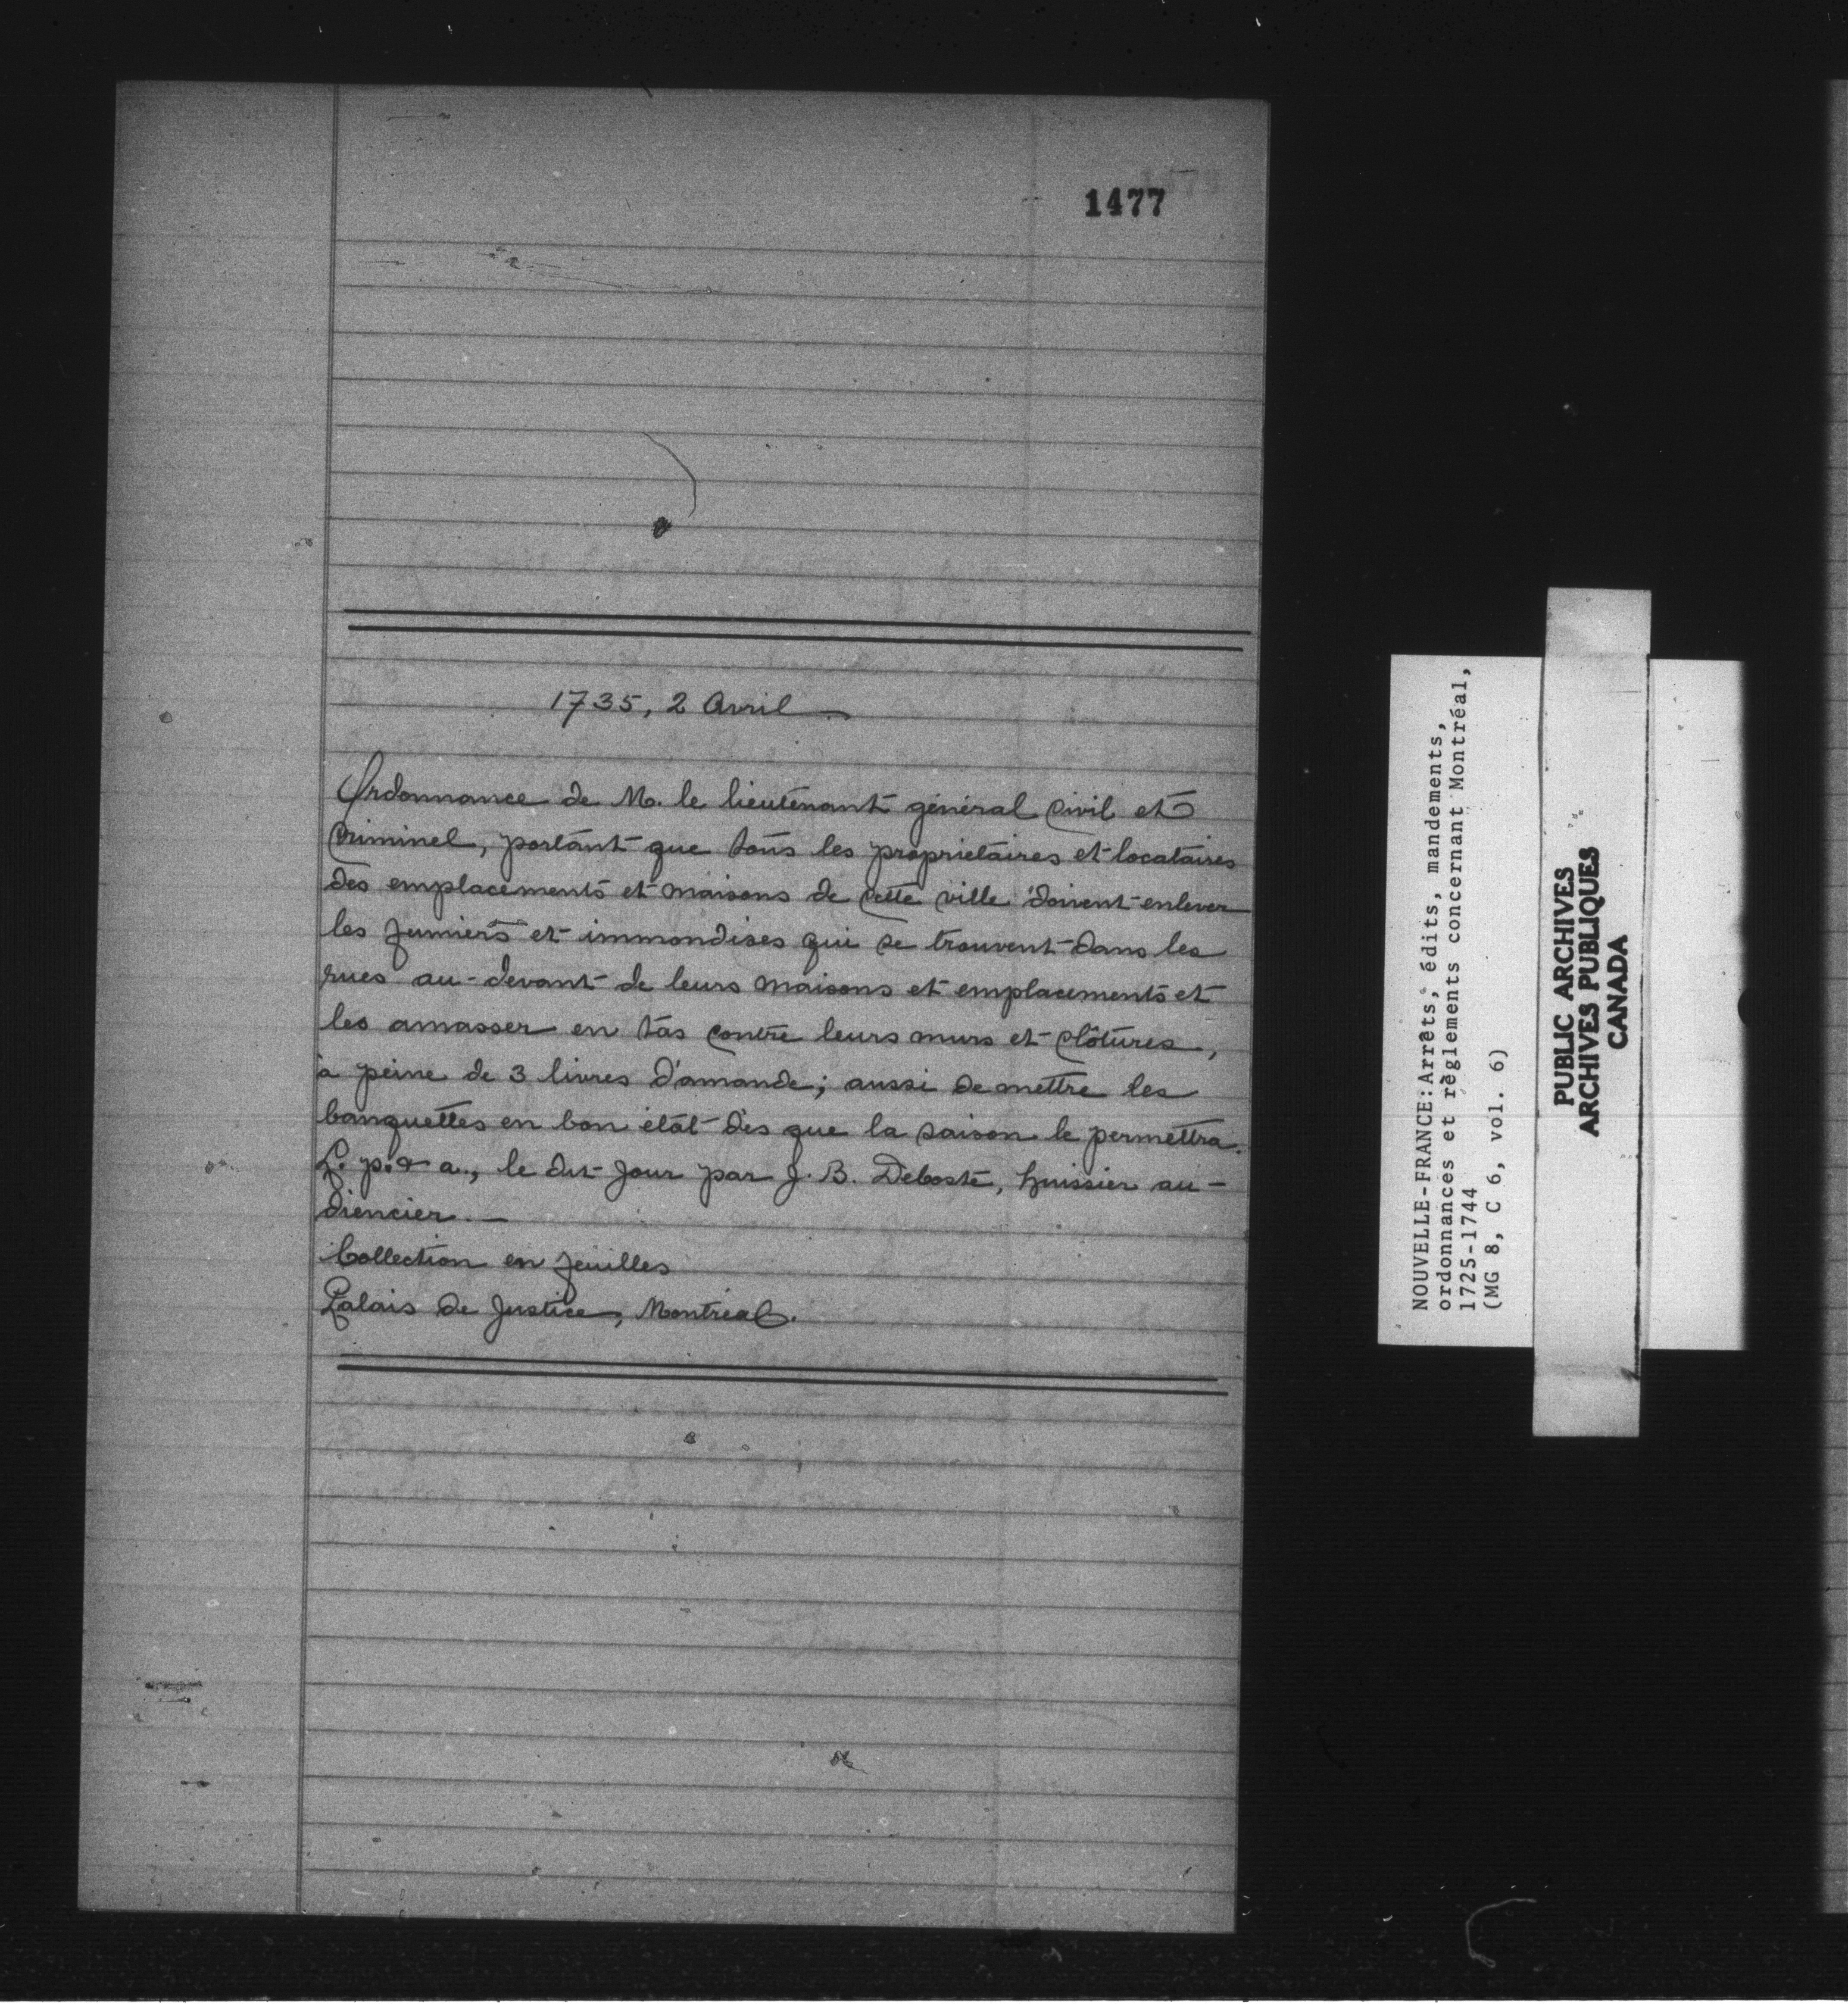 1477
1735, 2 Avril
Ordonnance de M. le lieutenant général civil et
criminel, portant que tous les propriétaires et locataires
des emplacements et maisons de cette ville doivent enlever
les fumiers et immondises qui se trouvent dans les
rues au-devant de leurs maisons et emplacements et
les amasser en tas contre leurs murs et clôtures,
à peine de 3 livres d'amande; aussi de mettre les
banquettes en bon état dès que la saison le permettra.
L. p. & a., le dit jour par J. B. Deboste, huissier au-
diencier.—
Collection en feuilles
Palais de Justice, Montréal.
NOUVELLE-FRANCE: Arrêts, édits, mandements,
ordonnances et règlements concernant Montréal,
1725-1744
(MG 8, C 6, vol. 6)
PUBLIC ARCHIVES
ARCHIVES PUBLIQUES
CANADA